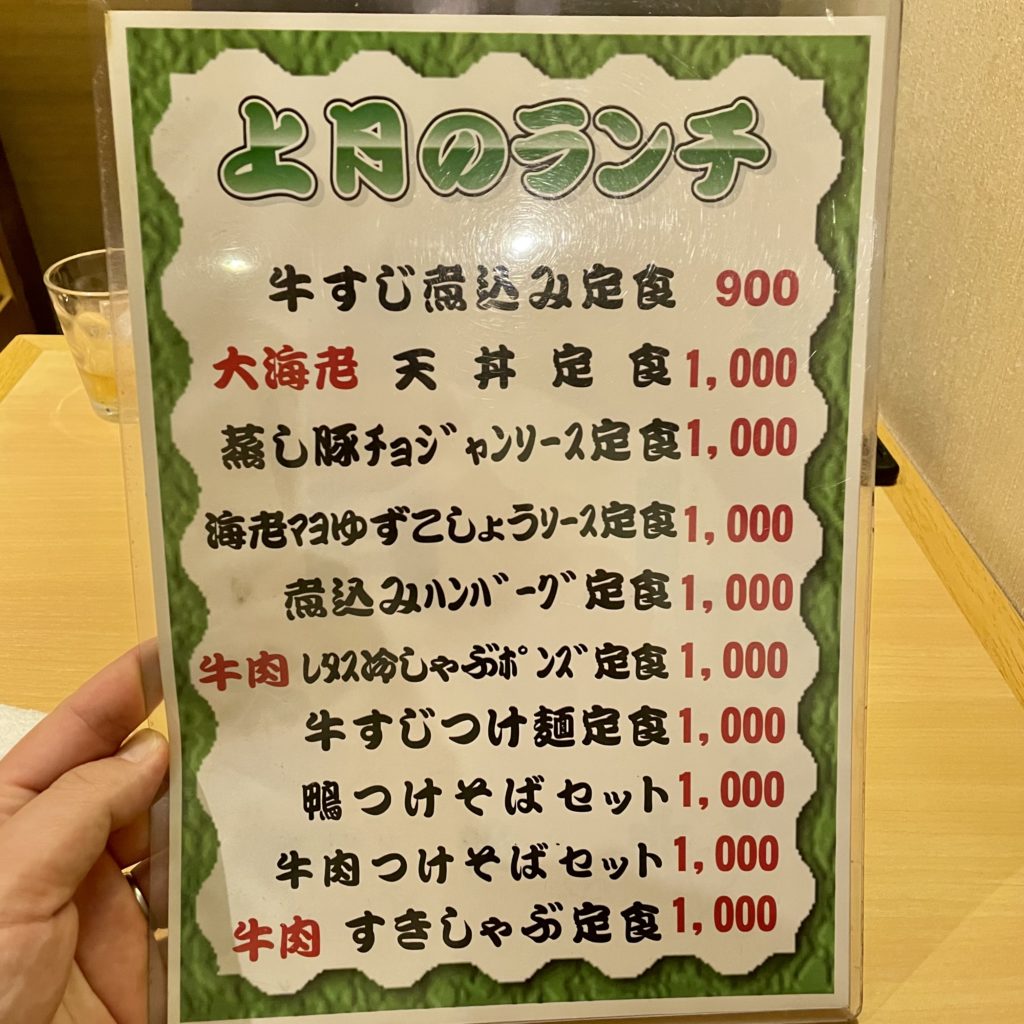 上月のランチ
牛すじ煮込み定食 900
大海老 天丼定食 1,000
蒸し豚チョジャンソース定食 1,000
海老マヨゆずこしょうソース定食 1,000
煮込みハンバーグ定食 1,000
牛肉 レタス冷しゃぶポンズ定食 1,000
牛すじつけ麺定食 1,000
鴨つけそばセット 1,000
牛肉つけそばセット 1,000
牛肉 すきしゃぶ定食 1,000